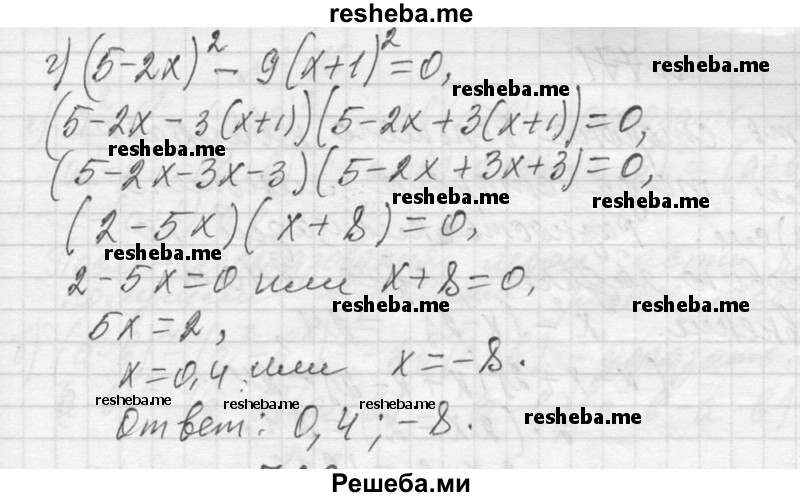 resheba.me
г) (5-2x)² - 9(x+1)² = 0,
resheba.me
resheba.me
(5-2x-3(x+1))(5-2x+3(x+1))=0,
resheba.me
(5-2x-3x-3)(5-2x+3x+3)=0,
resheba.me
resheba.me
(2-5x)(x+8)=0,
resheba.me
2-5x=0 или x+8=0,
resheba.me
resheba.me
5x=2,
x=0,4 или x=-8.
resheba.me
resheba.me
resheba.me
resheba.me
Ответ: 0,4; -8.
Решеба.ми